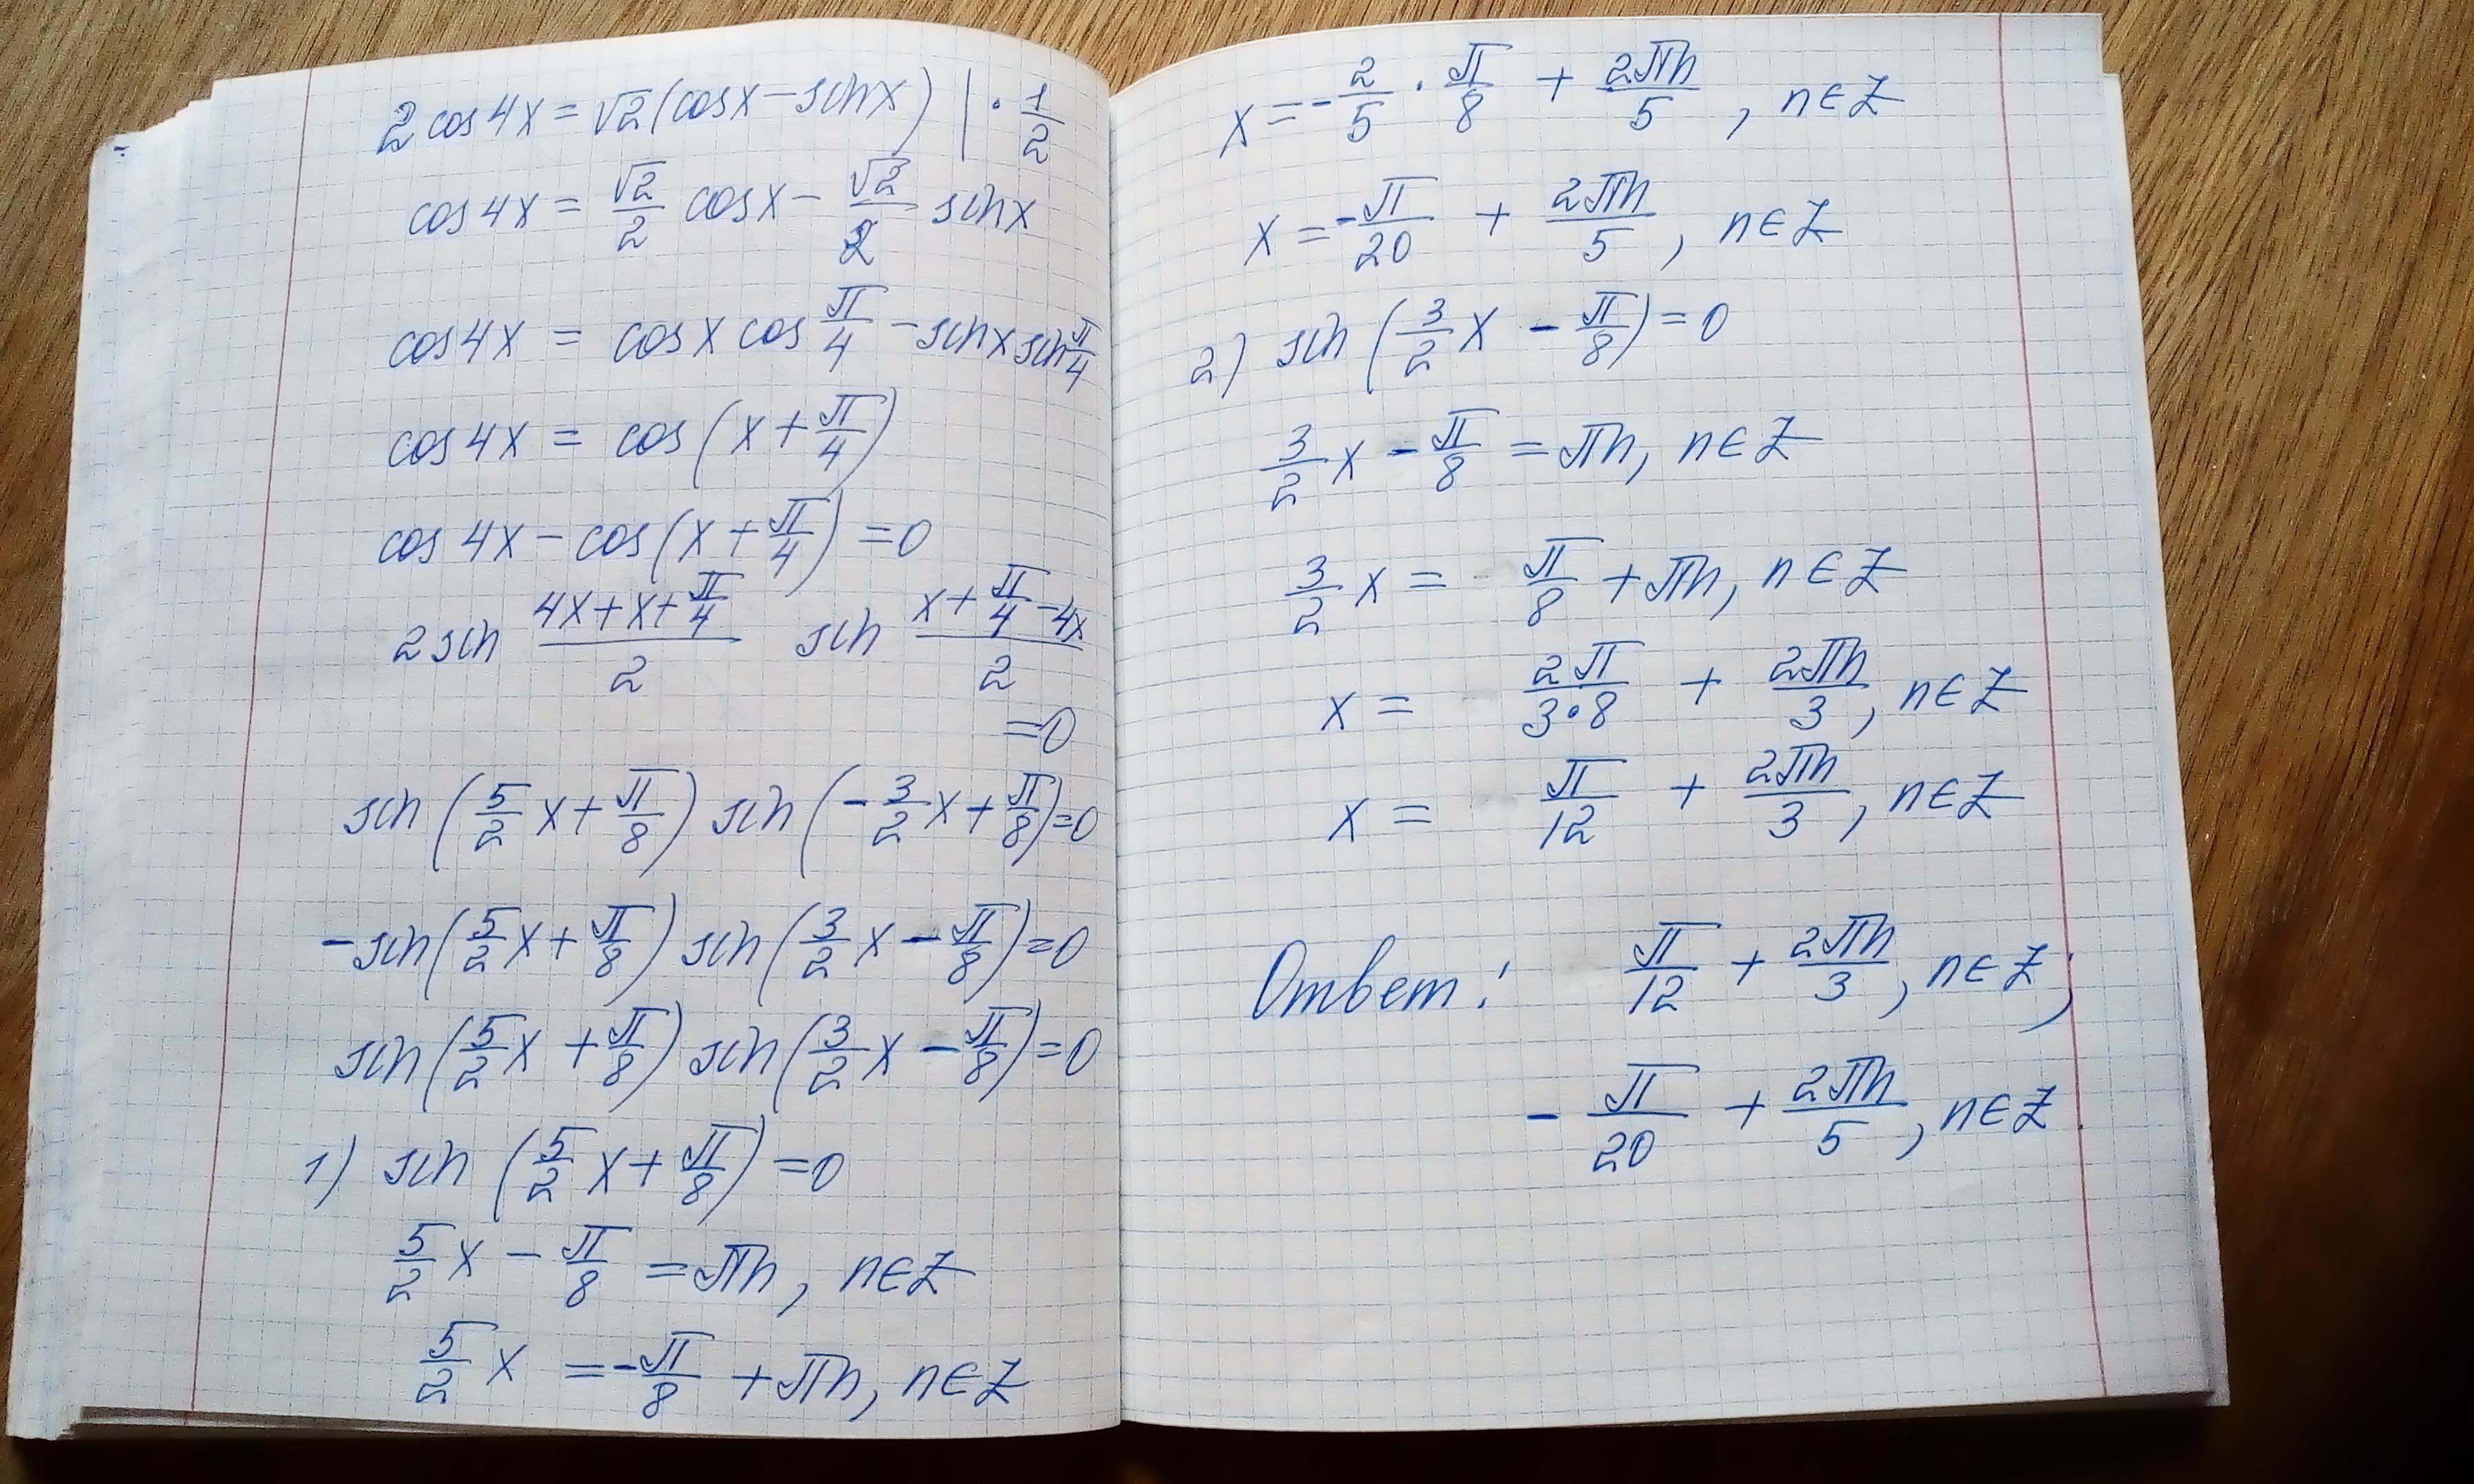 2 cos 4x = √2 (cos x − sin x) | · 1/2
cos 4x = √2/2 cos x − √2/2 sin x
cos 4x = cos x cos π/4 − sin x sin π/4
cos 4x = cos (x + π/4)
cos 4x − cos (x + π/4) = 0
2 sin (4x + x + π/4)/2 sin (x + π/4 − 4x)/2
= 0
sin (5/2 x + π/8) sin (− 3/2 x + π/8) = 0
− sin (5/2 x + π/8) sin (3/2 x − π/8) = 0
sin (5/2 x + π/8) sin (3/2 x − π/8) = 0
1) sin (5/2 x + π/8) = 0
5/2 x − π/8 = πn, n ∈ Z
5/2 x = − π/8 + πn, n ∈ Z
x = − 2/5 · π/8 + 2πn/5, n ∈ Z
x = − π/20 + 2πn/5, n ∈ Z
2) sin (3/2 x − π/8) = 0
3/2 x − π/8 = πn, n ∈ Z
3/2 x = π/8 + πn, n ∈ Z
x = 2π/3·8 + 2πn/3, n ∈ Z
x = π/12 + 2πn/3, n ∈ Z
Ответ: π/12 + 2πn/3, n ∈ Z;
− π/20 + 2πn/5, n ∈ Z.